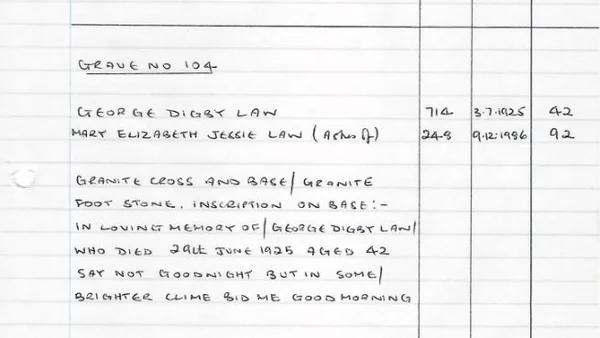 GRAVE NO 104
GEORGE DIGBY LAW 714 3.7.1925 42
MARY ELIZABETH JESSIE LAW (Ashes of) 248 9.12.1986 92
GRANITE CROSS AND BASE/GRANITE
FOOT STONE. INSCRIPTION ON BASE:-
IN LOVING MEMORY OF/GEORGE DIGBY LAW/
WHO DIED 29th JUNE 1925 AGED 42
SAY NOT GOODNIGHT BUT IN SOME/
BRIGHTER CLIME BID ME GOOD MORNING